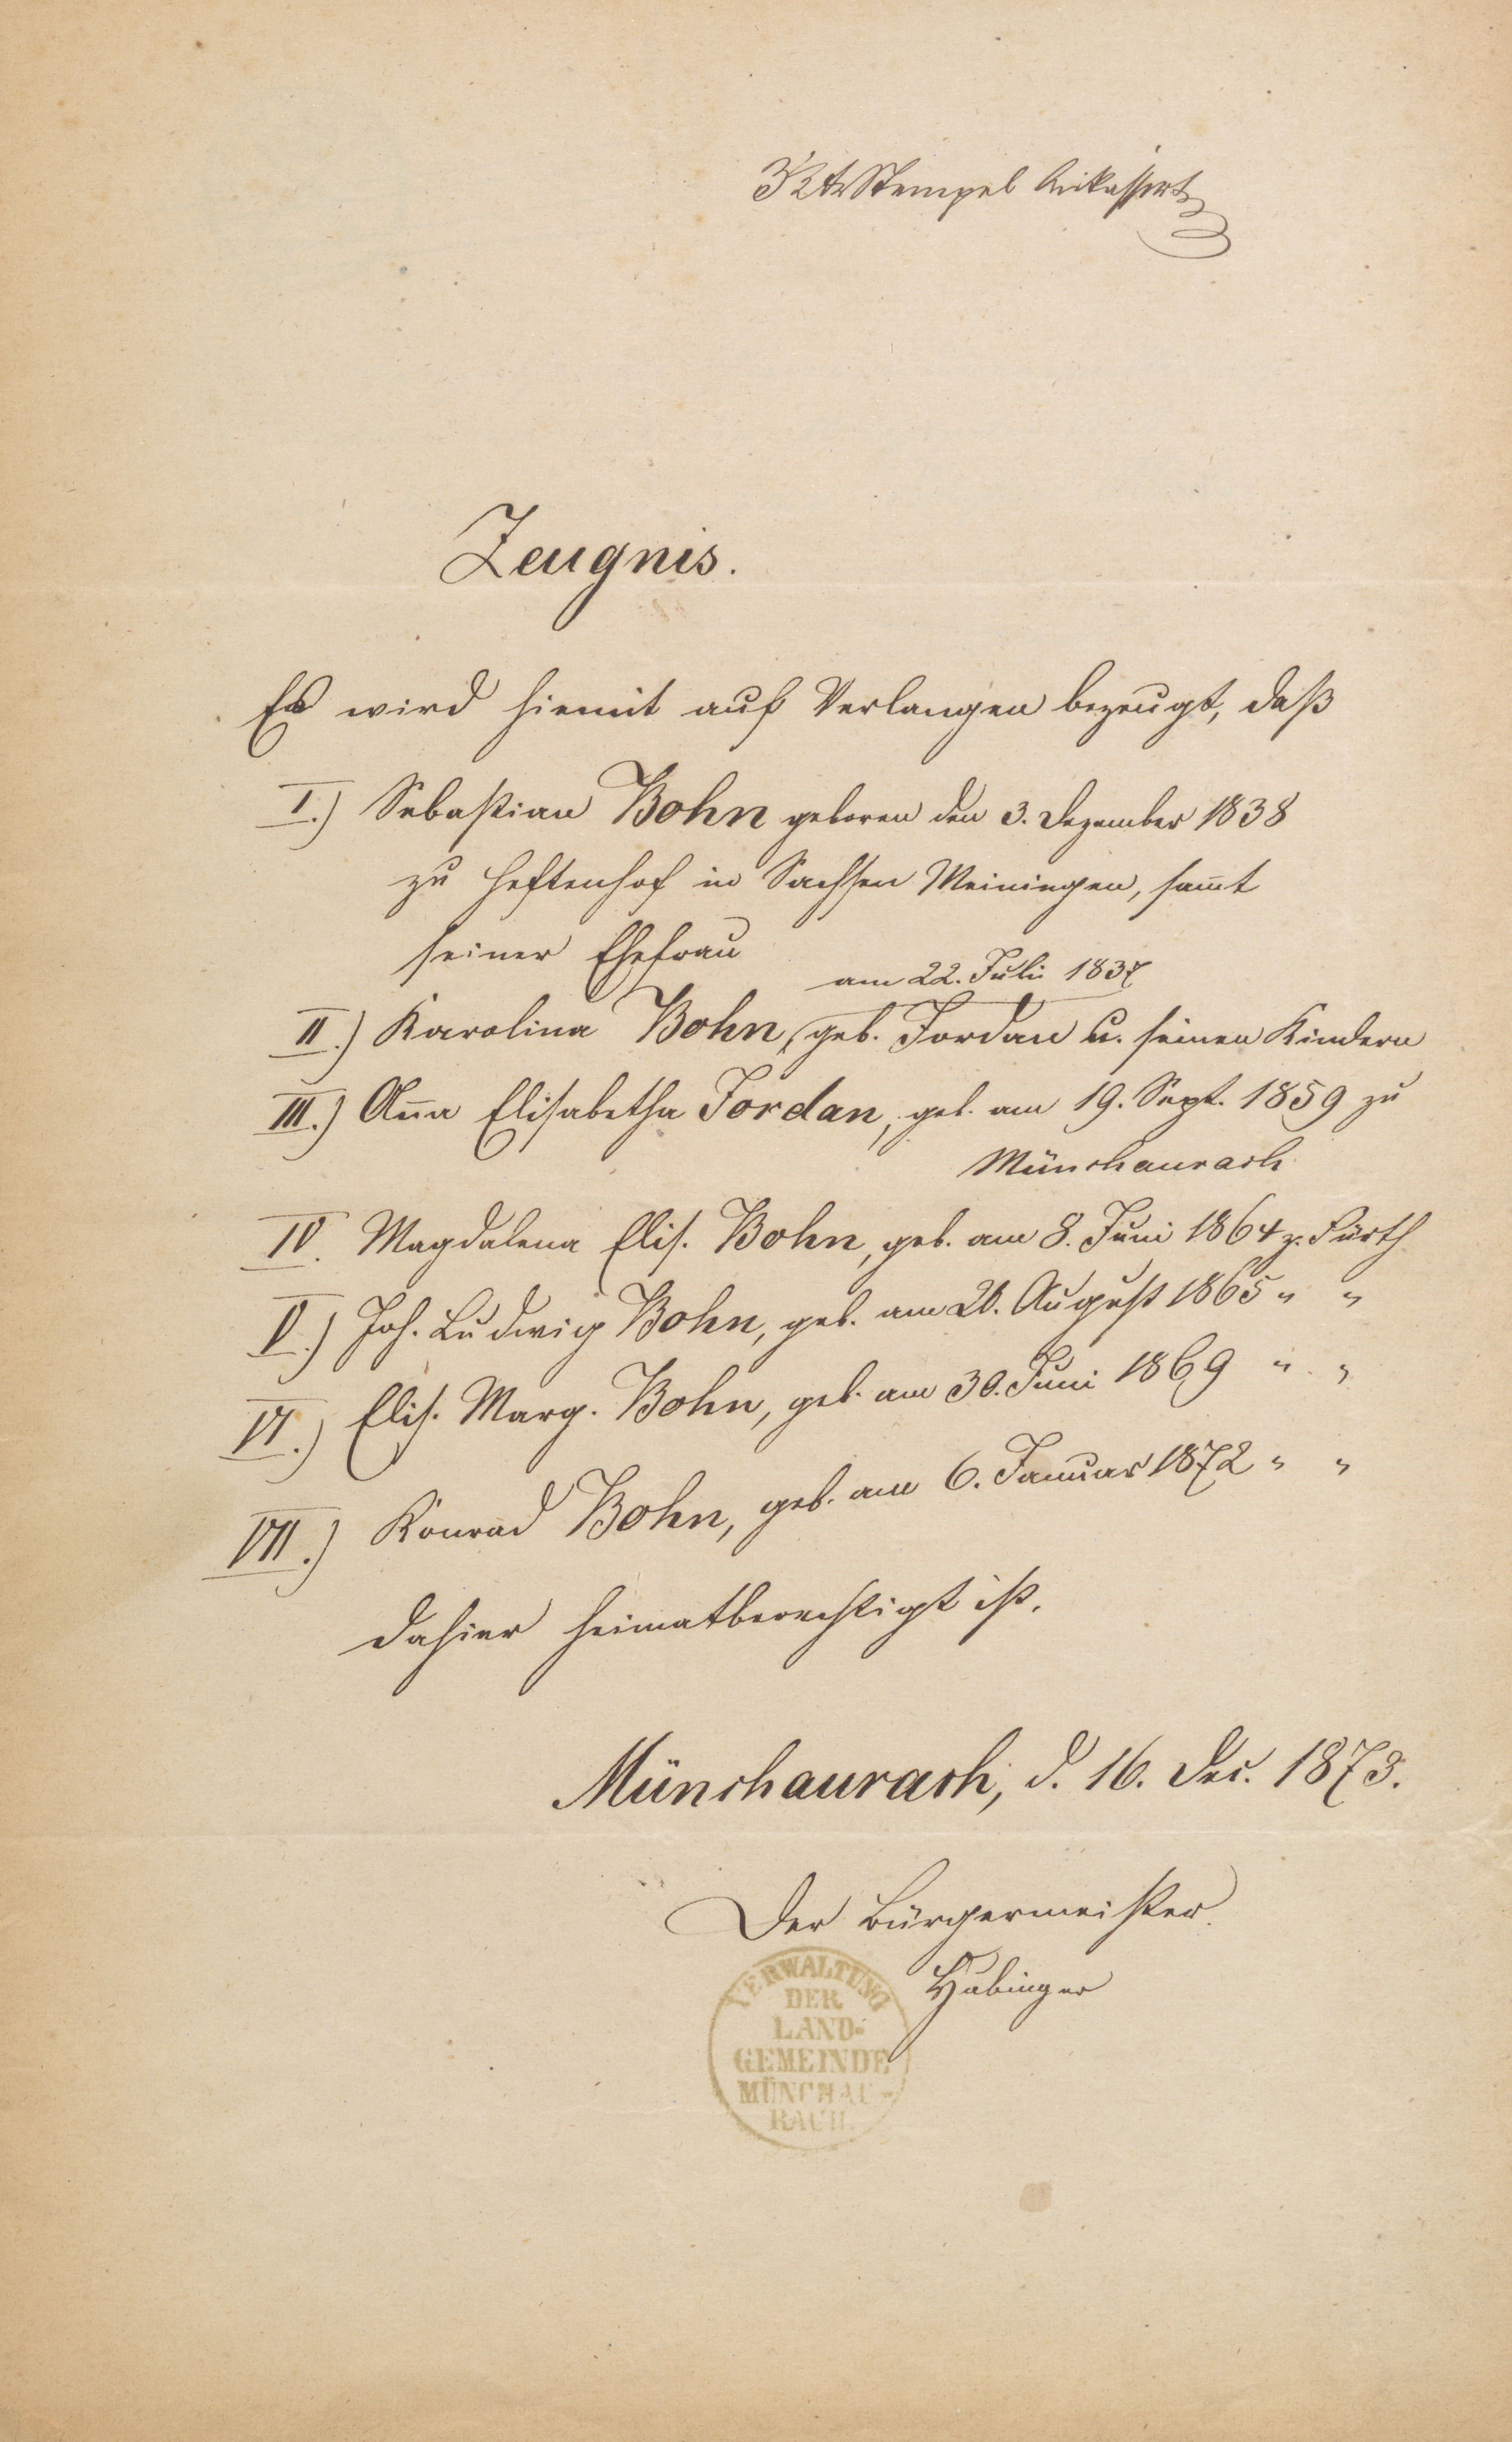 3 Kr Stempel kassirt
Zeugnis.
Es wird hiemit auf Verlangen bezeugt, daß
I.) Sebastian Bohn geboren den 3. Dezember 1838
zu Heftenhof in Sachsen Meiningen, sam̄t
seiner Ehefrau
am 22. Juli 1837
II.) Karolina Bohn, geb. Jordan u. seinen Kindern
III.) An̄a Elisabetha Jordan, geb. am 19. Sept. 1859 zu
Münchaurach
IV. Magdalena Elis. Bohn, geb. am 8. Juni 1864 z. Fürth
V.) Joh. Ludwig Bohn, geb. am 20. August 1865 " "
VI.) Elis. Marg. Bohn, geb. am 30. Juni 1869 " "
VII.) Konrad Bohn, geb. am 6. Januar 1872 " "
dahier heimatberechtigt ist.
Münchaurach, d. 16. Dec. 1873.
Der Bürgermeister.
Hubinger
VERWALTUNG
DER
LAND-
GEMEINDE
MÜNCHAU-
RACH.